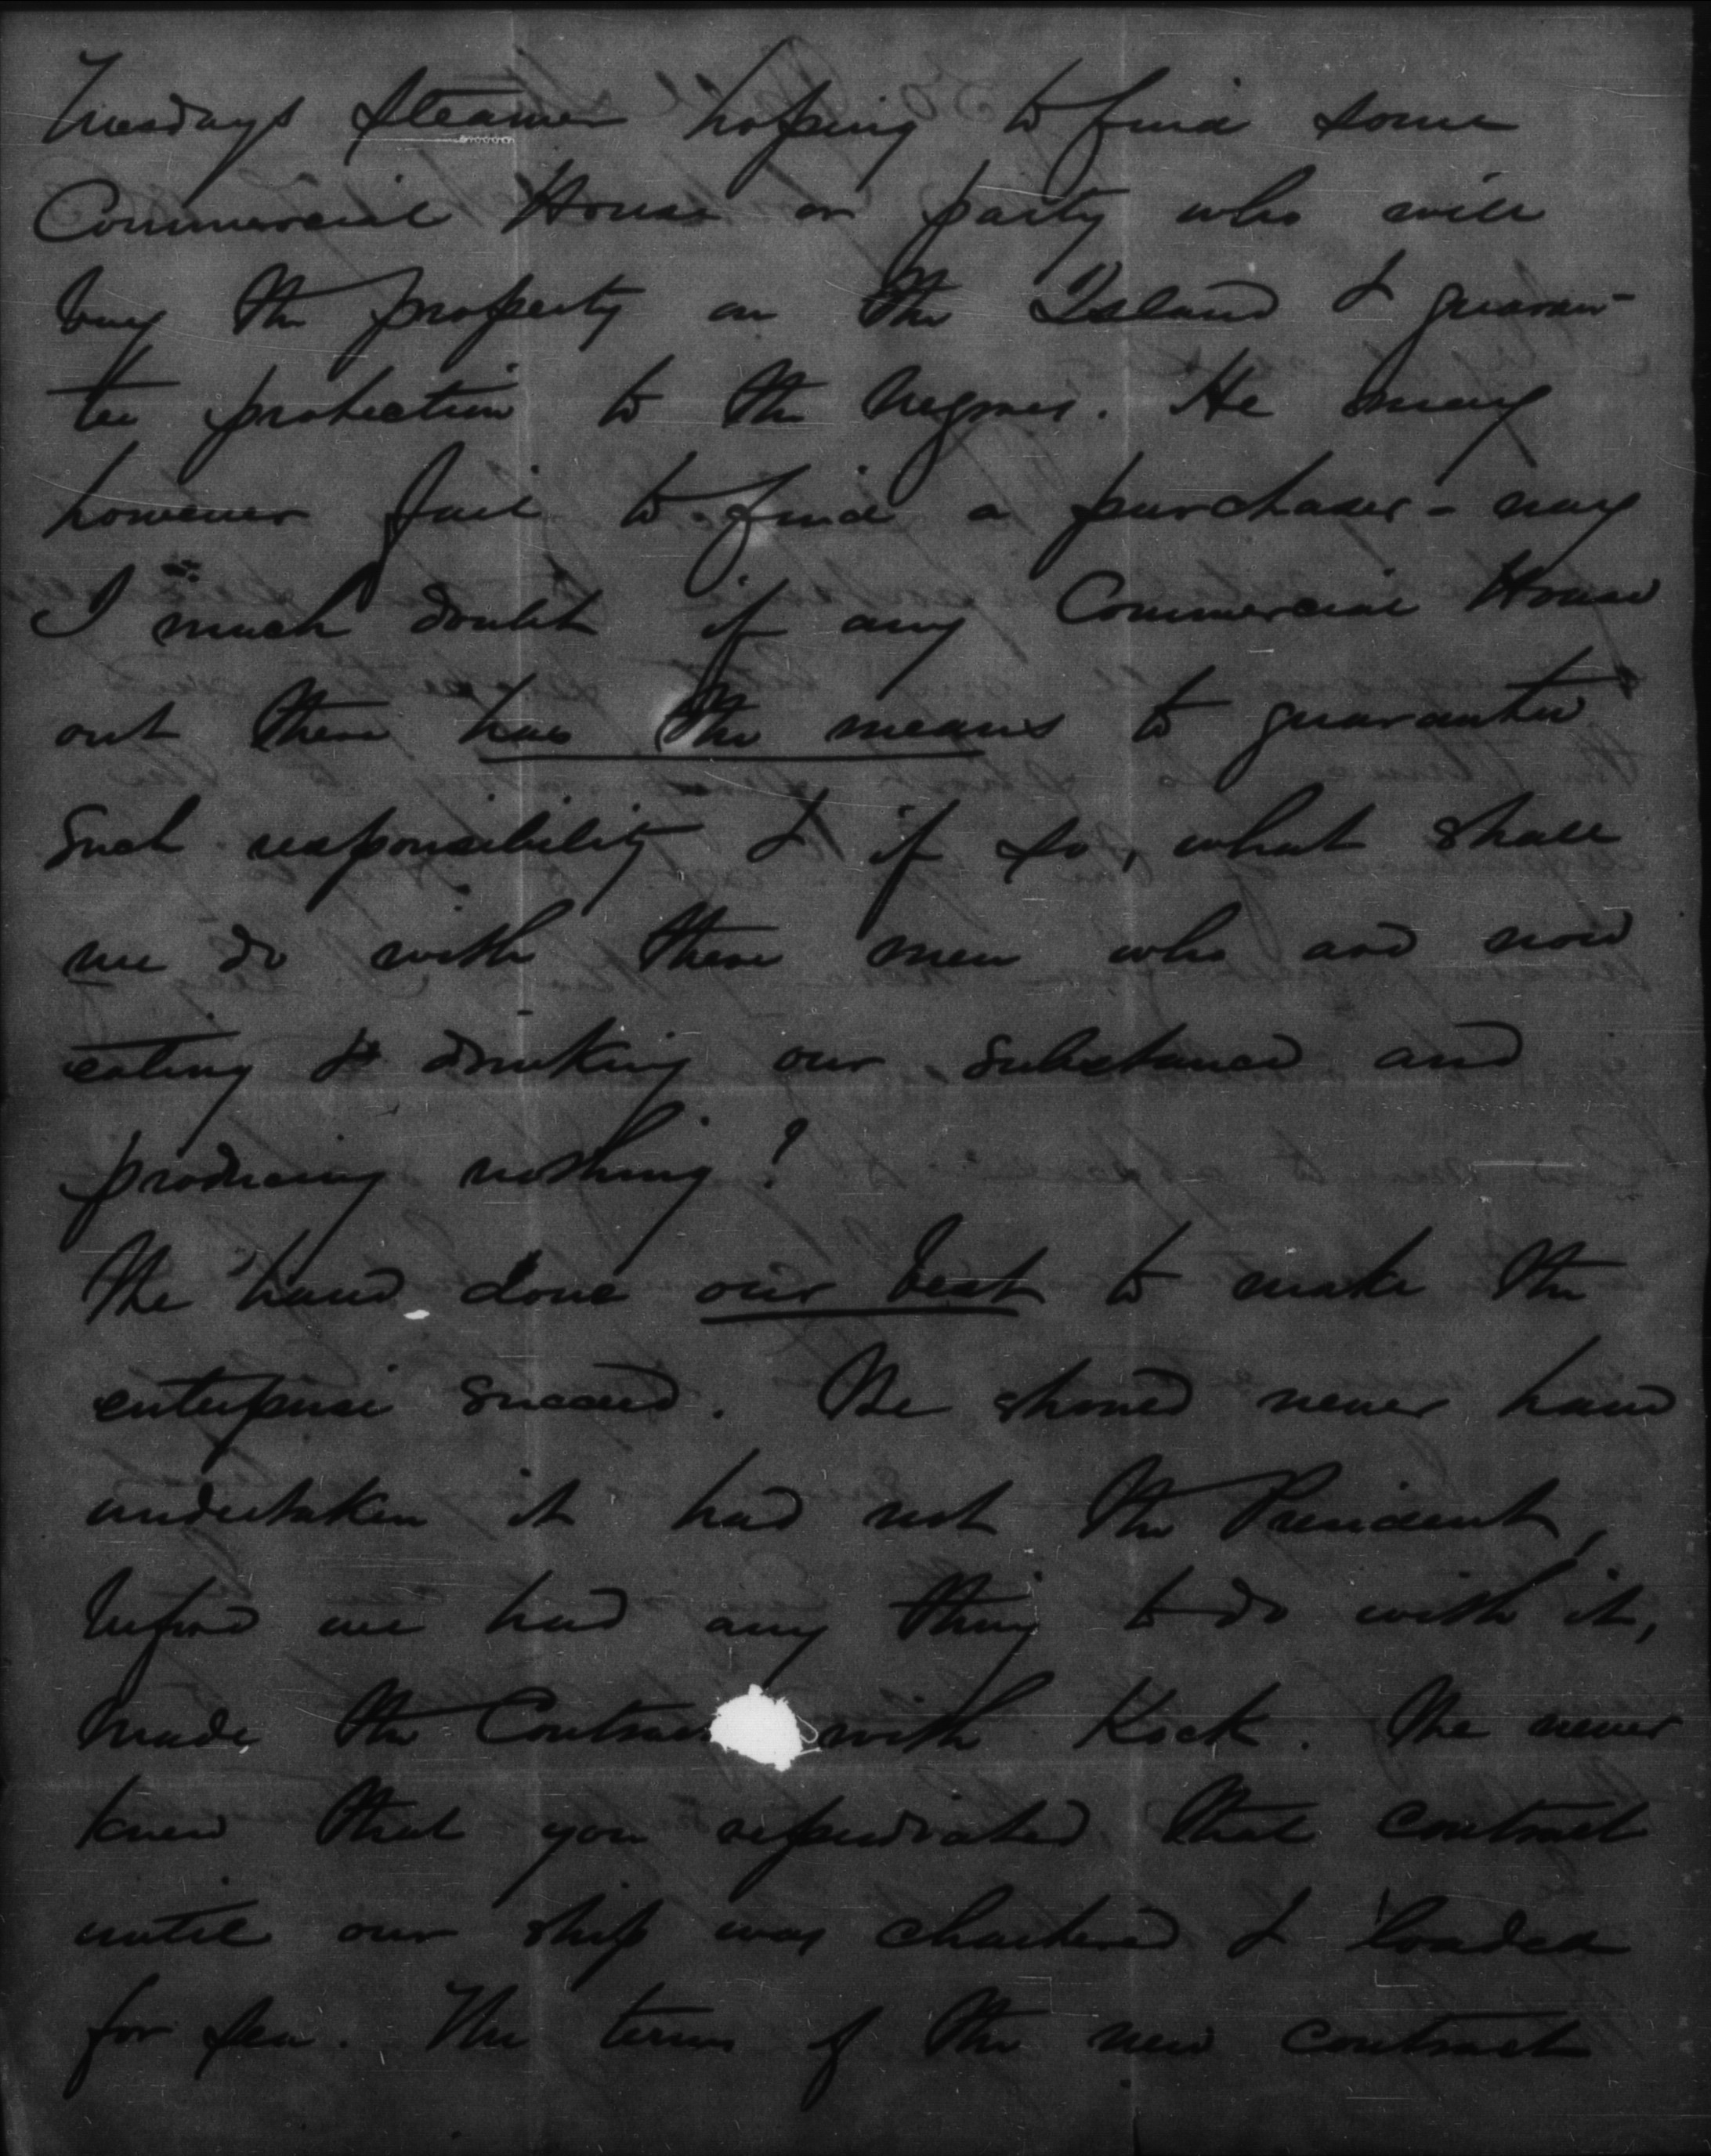 Tuesdays steamer hoping to find some
Commercial House or party who will
buy the property on the Island & guaran-
tee protection to the negroes. He may
however fail to find a purchaser - nay
I much doubt if any Commercial House
out there has the means to guarantee
such responsibility & if so, what shall
we do with these men who are now
eating & drinking our substance and
producing nothing?
We have done our best to make the
enterprise succeed. We should never have
undertaken it had not the President,
before we had any thing to do with it,
made the Contract with Kock. We never
knew that you repudiated that contract
until our ship was chartered & loaded
for sea. The terms of the new contract